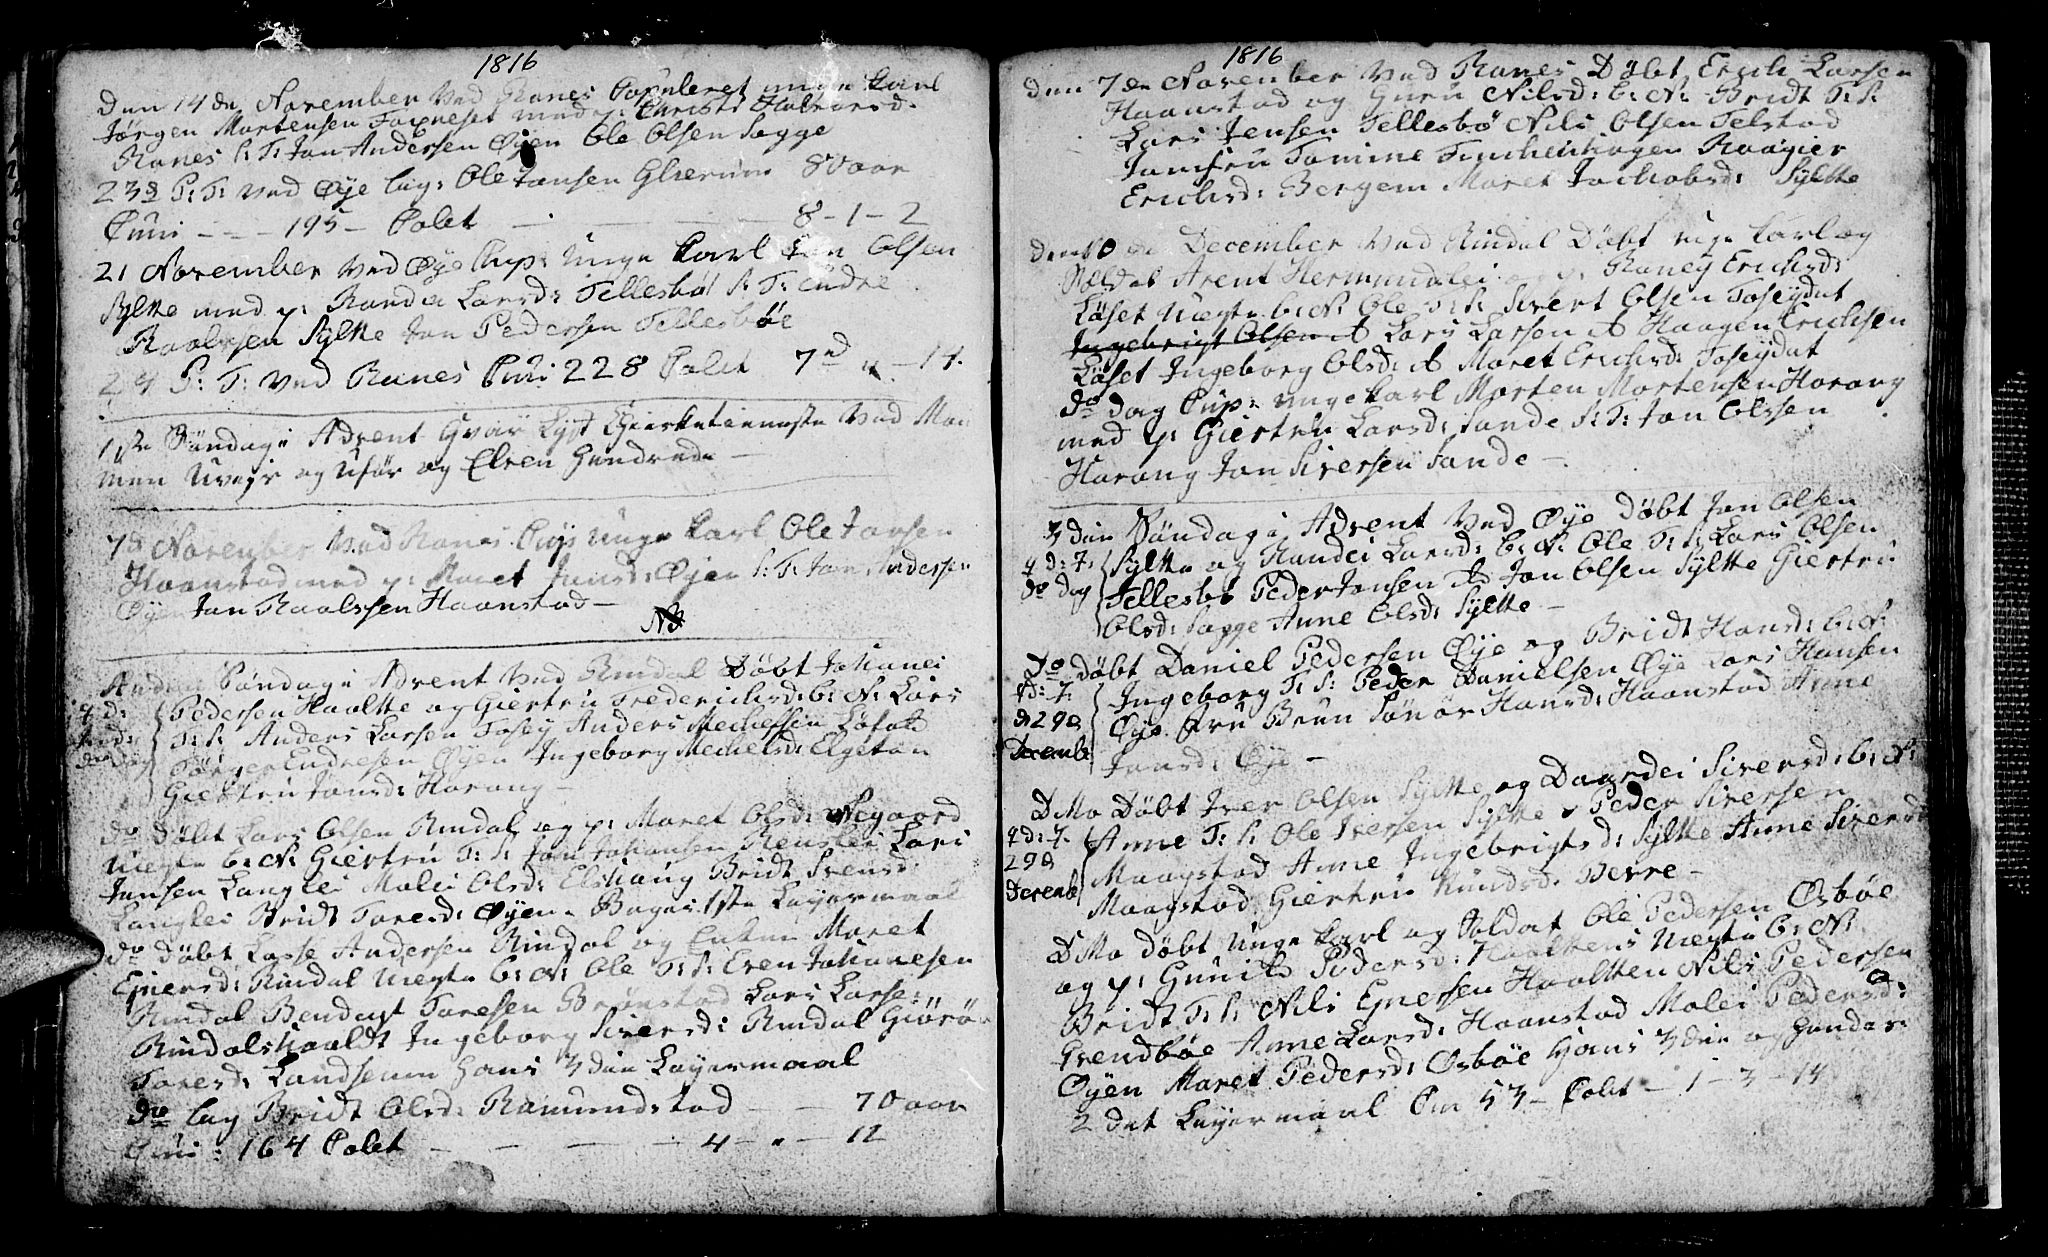 1816
Den 14de November ved Ranes Copuleret unge karl
Jørgen Mortensen Foxneset med p. Christi Halvorsd.
Ranes S: T: Jan Andersen Øyen Ole Olsen Sagge
23d P: T: ved Øye lag: Ole Jansen Glærum 80 aar
Cumi - - - 195 - Calet - - - 8 - 1 - 2
21 November ved Øye Cup: unge karl Jan Olsen
Sylte med p. Randei Larsd: Tellesbøe S: T: Endre
Roalsen Sylte Jan Pedersen Tellesbøe
24 P: T: ved Ranes Cumi 228 Calet 7d " - 14.
1ste Søndag i Advent
men Uveyr og Ufør og Elven
7d November ved Ranes Cup unge karl Ole Jansen
Haanstad med p. Maret Jansd: Øyen S: T: Jan Andersen
Øyen Jan Roalssen Haanstad -
Anden Søndag i Advent ved Rindal Døbt Johanes
Pedersen Haaltte og Giertru Frederichsd: b: N: Lars
T: S: Anders Larsen Tosey Anders Mechelsen Løfald
Jørgen Endresen Øyen Ingeborg Mechelsd: Elgetun
Giertru Jansd: Harang -
do Døbt Lars Olsen Rindal og p. Maret Olsd: Negaard
Uægte b: N: Giertru T: S: Jan Johansen Renslei Lars
Jansen Langlei Malei Olsd: Elshaug Bridt Svensd:
Langlei Bridt Toresd: Øyen Begges 1ste Leyermaal
do Døbt Lasse Andersen Rindal og Enken Maret
Ejnersd: Rindal Uægte b: N: Ole T: S: Even Johannesen
Rindal Bendigt Toresen Brønstad Lars Larsen
Rindalshaaldt Ingeborg Siversd: Rindal Giørø
Toresd: Landsemm Hans 3die Leyermaal
do lag Bridt Olsd: Ramundstad - - 70 aar
Cumi: 164 Calet - - - - 4 - " - 12
1816
Den 7de November ved Ranes Døbt Erich Larsen
Haanstad og Guru Nilsd: b: N: Bridt T: S:
Lars Jensen Tellesbø Nils Olsen Telstad
Jomfru Tomine Roagier
Erichsd: Bergem Maret Jachobsd: Sylte
December ved Rindal Døbt unge karl og
Soldat Arent Hermundslei og p. Raney Erichsd:
Løset Uægte b: N: Ole T: S: Sivert Olsen Toseydal
Ingebrigt Olsen Lars Larsen Haagen Erichsen
Løset Ingeborg Olsd: Maret Erichsd: Toseydal
do dag Cup: unge karl Morten Mortensen Harang
med p. Giertru Larsd: Sande S: T: Jan Olssen
Harang Jan Siversen Sande -
3die Søndag i Advent ved Øye Døbt Jan Olsen
Sylte og Randei Larsd: b: N: Ole T: S: Lars Olsen
Tellesbø Peder Jansen Jan Olsen Sylte Giertru
Olsd: Sagge Anne Olsd: Sylte -
do dag
Do Døbt Daniel Pedersen Øye og Bridt Hansd: b: N:
Ingeborg T: S: Peder Danielsen Øye Lars Hansen
Øye Fru Brun Sønør Hansd: Haanstad Anne
Jansd: Øye -
d 29d
Decemb
DMo Døbt Iver Olsen Sylte og Daardei Siversd: b: N:
Anne T: S: Ole Iversen Sylte Peder Siversen
Maagstad Anne Ingebrigtsd: Sylte Anne Siversd
Maagstad Giertru Knudsd: Berre -
29d
Decemb
DMo Døbt Unge karl og Soldat Ole Pedersen Øsbøe
og p. Gunild Pedersd: Haalttens Uægte b: N:
Bridt T: S: Nils Ejnersen Haaltten Nils Pedersen
Grendbøe Anne Larsd: Haanstad Malei Pedersd:
Øyen Maret Pedersd: Øsbøe Hans 3die og Hendes
2det Leyermaal Cm 53 - Calet - 1 - 3 - 14